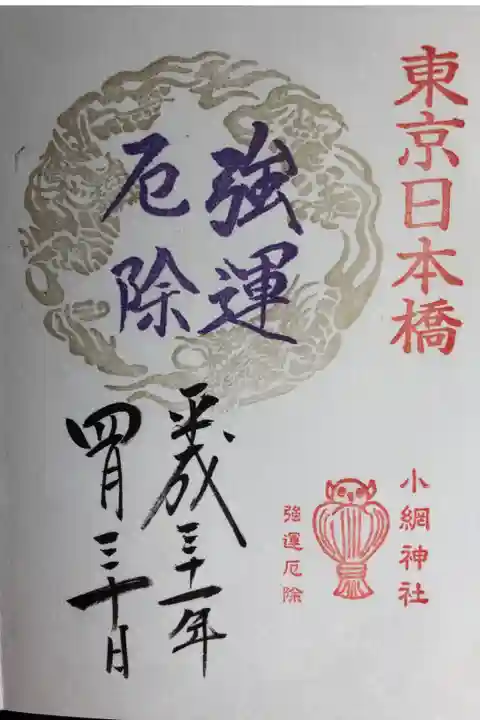 東京日本橋
強運
厄除
平成三十一年
四月三十日
小網神社
強運厄除